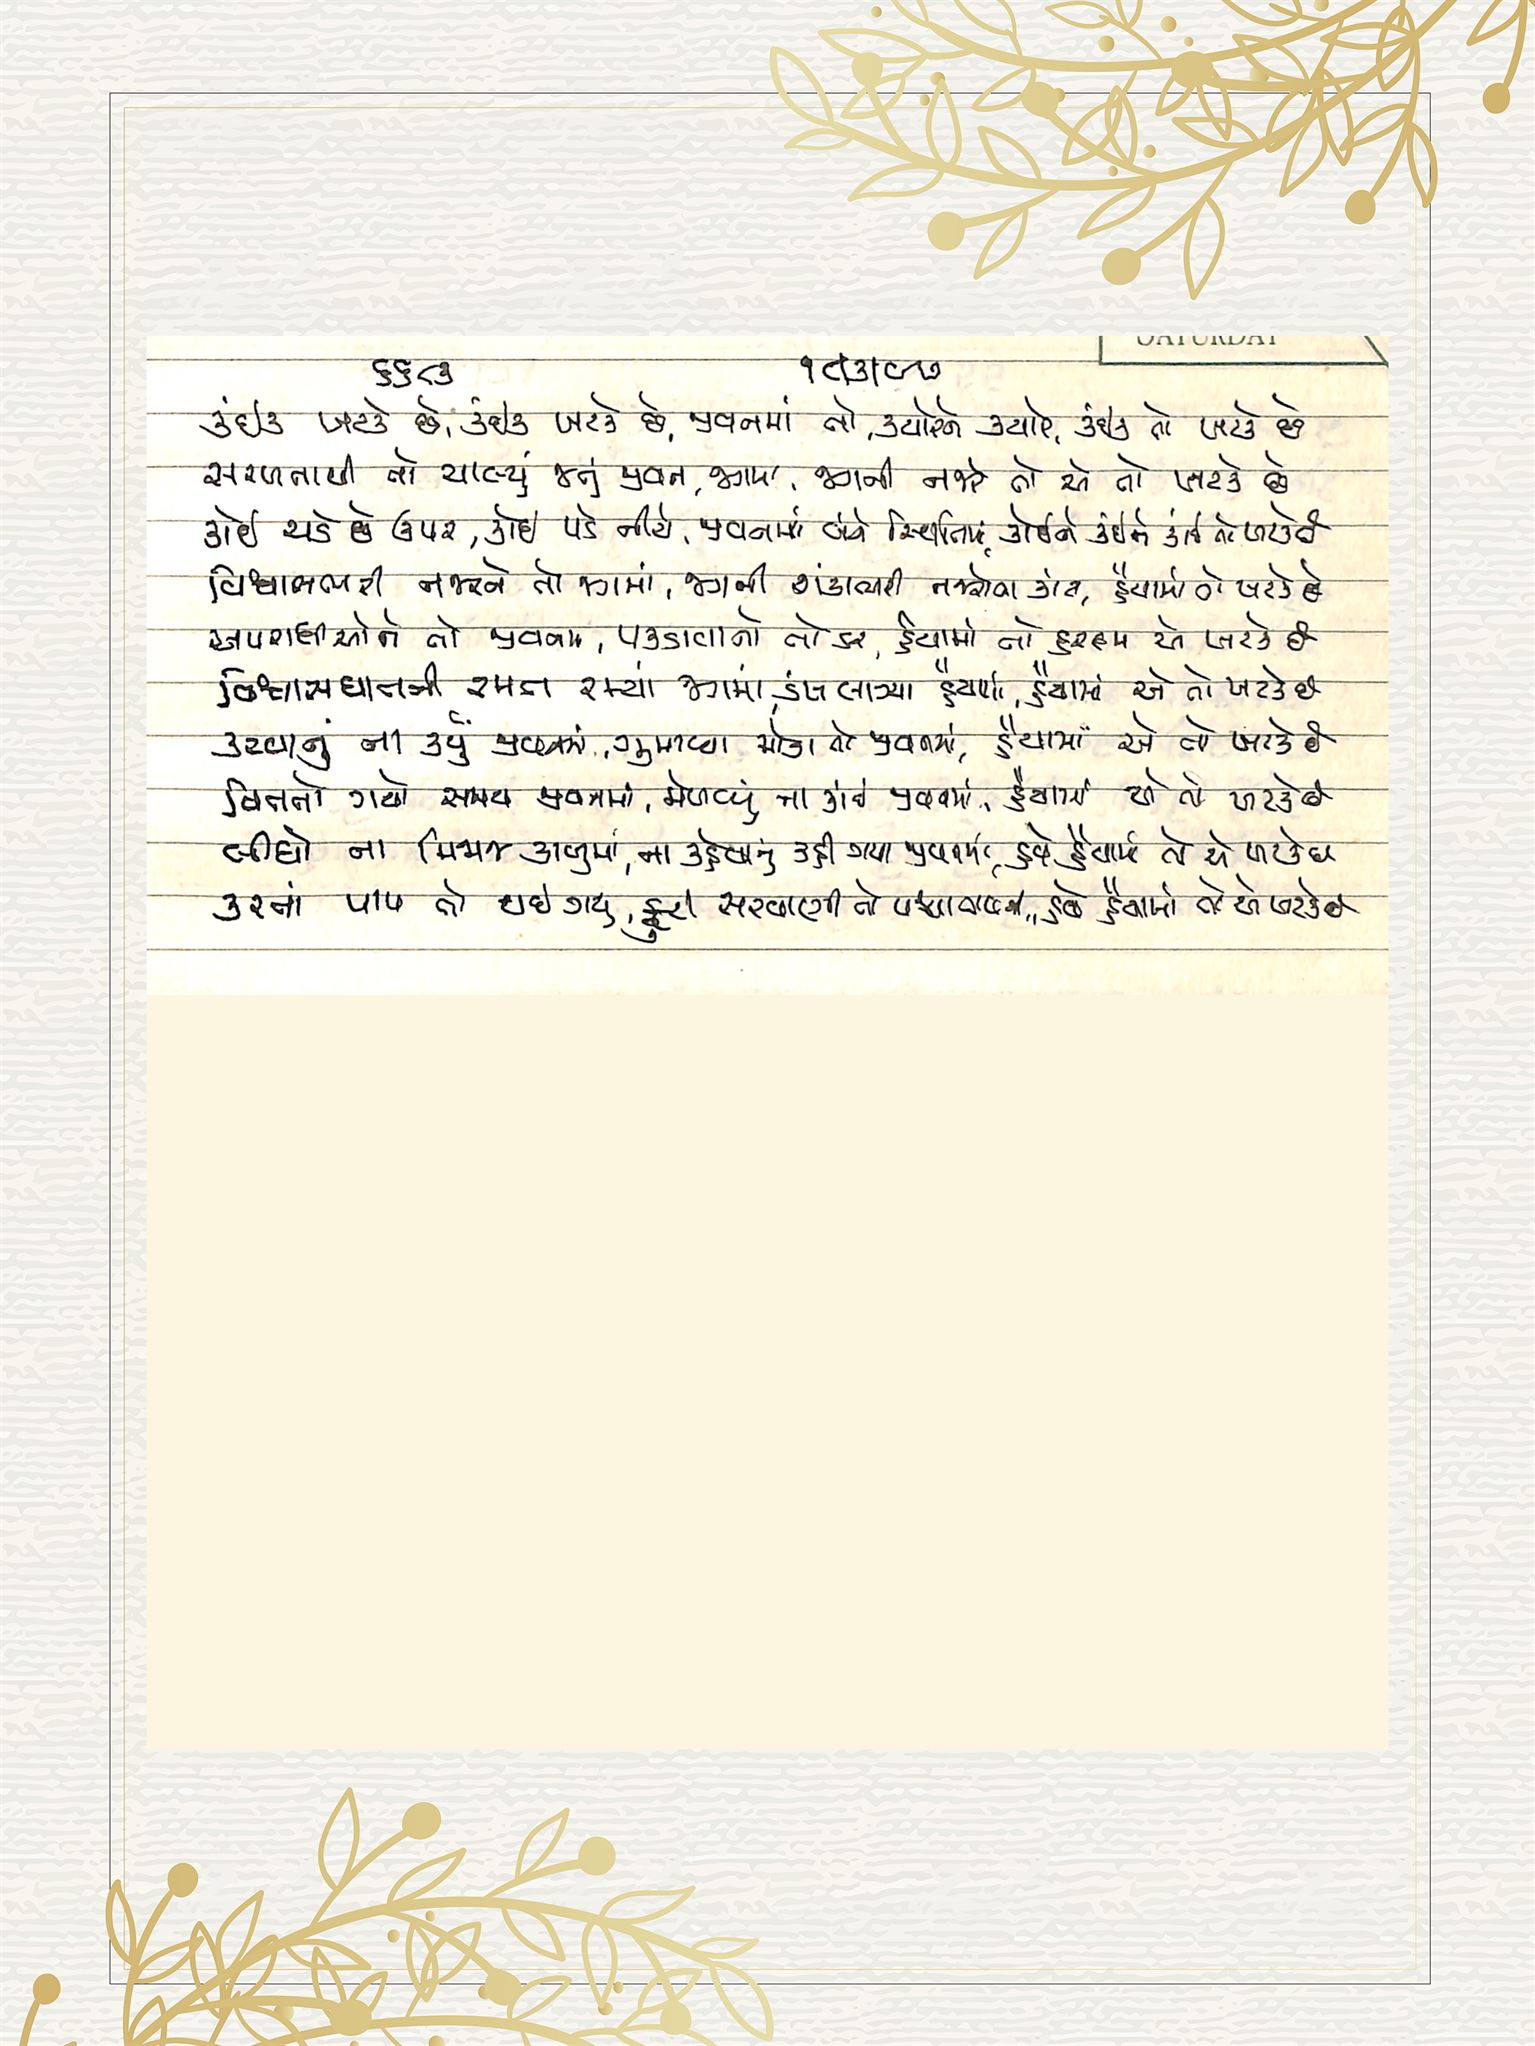 SATURDAY
૬૬૯૩ ૧૮|૩|૯૭
કંઈક ખટકે છે, કંઈક ખટકે છે, જીવનમાં તો, ક્યારેને ક્યારે, કંઈક તો ખટકે છે
સરળતાથી તો ચાલ્યું જતું જીવન, જગમાં, જગની નજરે તો એ તો ખટકે છે
કોઈ ચડે છે ઉપર, કોઈ પડે નીચે, જીવનમાં બંને સ્થિતિમાં, કોઈને કંઈને કાંઈ તો ખટકે છે
વિશ્વાસભરી નજરને તો જગમાં, જગની શંકાભરી નજરોના કાંટા, હૈયામાં તો ખટકે છે
અપરાધીઓને તો જીવનમાં, પકડાવાનો તો ડર, હૈયામાં તો હરદમ એ ખટકે છે
વિશ્વાસઘાતની રમત રમ્યા જગમાં, ડંખ લાગ્યા હૈયામાં, હૈયામાં એ તો ખટકે છે
કરવાનું ના કર્યું જીવનમાં, ગુમાવ્યા મોકા તો જીવનમાં, હૈયામાં એ તો ખટકે છે
વિતતો ગયો સમય જીવનમાં, મેળવ્યું ના કાંઈ જીવનમાં, હૈયામાં એ તો ખટકે છે
લીધો ના મિજાજ કાબુમાં, ના કહેવાનું કહી ગયા જીવનમાં, હવે હૈયામાં તો એ ખટકે છે
કરતાં પાપ તો થઈ ગયું, ફૂટી સરવાણી તો પશ્ચાતાપની, હવે હૈયામાં તો એ ખટકે છે